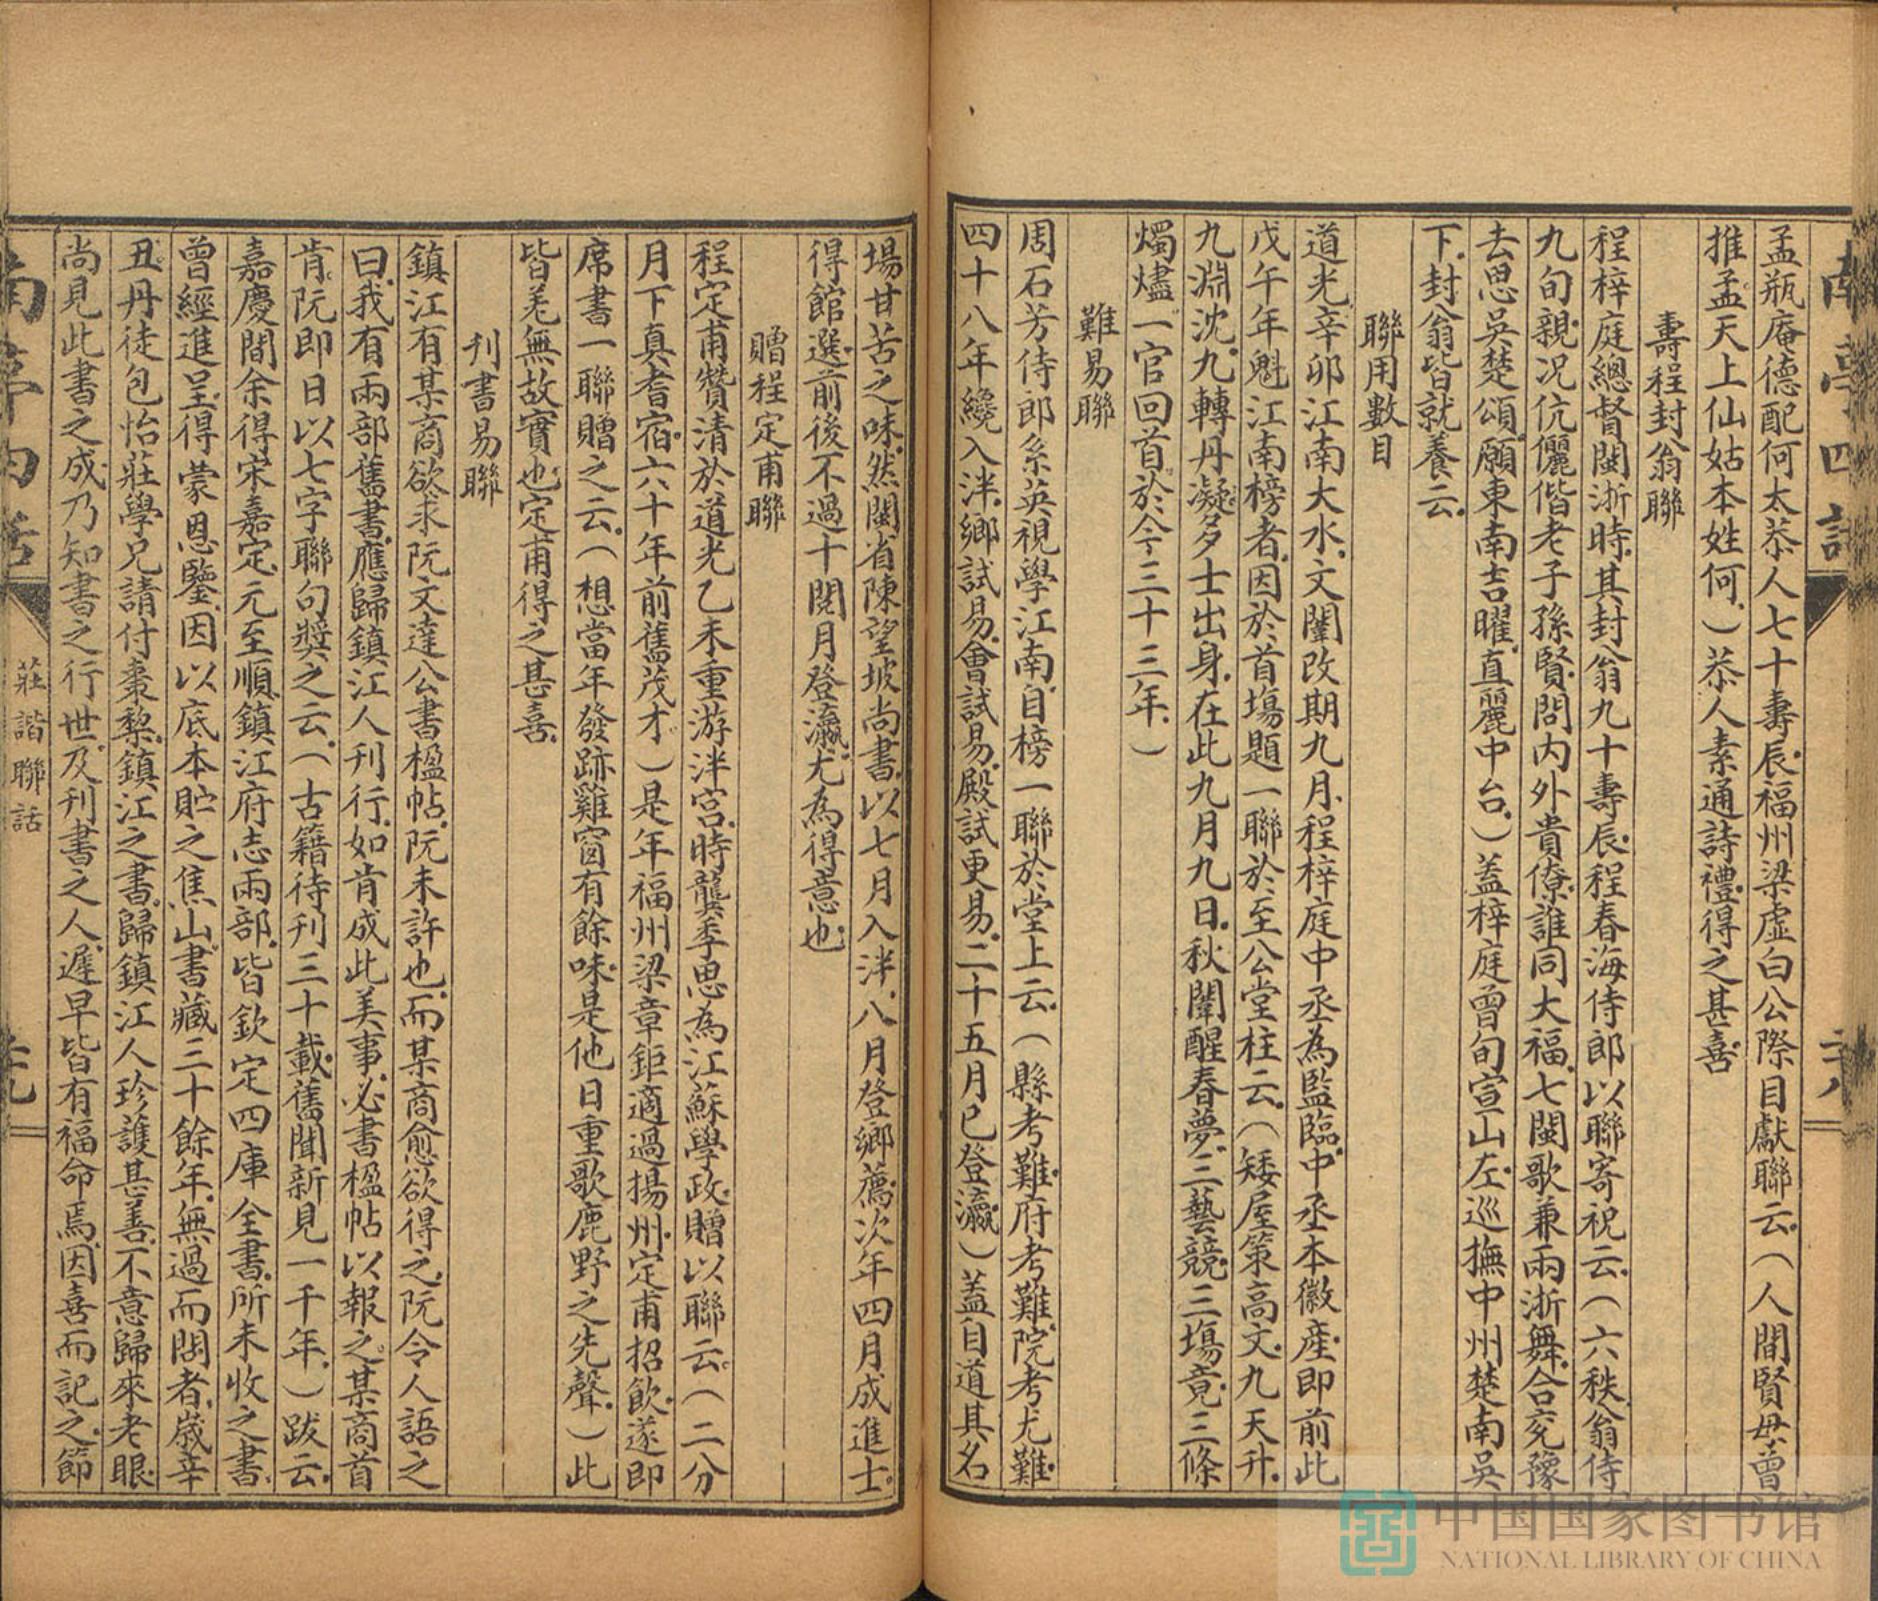 南亭四話
二八
孟瓶庵德配何太恭人七十壽辰福州梁虛白公際目獻聯云（人間賢母曾
推孟天上仙姑本姓何）恭人素通詩禮得之甚喜
壽程封翁聯
程梓庭總督閩浙時其封翁九十壽辰程春海侍郎以聯寄祝云（六秩翁侍
九旬親況伉儷偕老子孫賢問內外貴僚誰同大福七閩歌兼兩浙舞合兗豫
去思吳楚頌願東南吉曜直麗中台）蓋梓庭曾旬宣山左巡撫中州楚南吳
下封翁皆就養云
聯用數目
道光辛卯江南大水文闈改期九月程梓庭中丞為監臨中丞本徽產即前此
戊午年魁江南榜者因於首場題一聯於至公堂柱云（矮屋策高文九天升
九淵沈九轉丹凝多士出身在此九月九日秋闈醒春夢三藝競三場竟三條
燭燼一官回首於今三十三年）
難易聯
周石芳侍郎系英視學江南自榜一聯於堂上云（縣考難府考難院考尤難
四十八年纔入泮鄉試易會試易殿試更易二十五月已登瀛）蓋自道其名
場甘苦之味然閩省陳望坡尚書以七月入泮八月登鄉薦次年四月成進士
得館選前後不過十閱月登瀛尤為得意也
贈程定甫聯
程定甫贊清於道光乙未重游泮宮時龔季思為江蘇學政贈以聯云（二分
月下真耆宿六十年前舊茂才）是年福州梁章鉅適過揚州定甫招飲遂即
席書一聯贈之云（想當年發跡雞窗有餘味是他日重歌鹿野之先聲）此
皆羌無故實也定甫得之甚喜
刊書易聯
鎮江有某商欲求阮文達公書楹帖阮未許也而某商愈欲得之阮令人語之
曰我有兩部舊書應歸鎮江人刊行如肯成此美事必書楹帖以報之某商首
肯阮即日以七字聯句獎之云（古籍待刊三十載舊聞新見一千年）跋云
嘉慶間余得宋嘉定元至順鎮江府志兩部皆欽定四庫全書所未收之書
曾經進呈得蒙恩鑒因以底本貯之焦山書藏三十餘年無過而問者歲辛
丑丹徒包怡莊學兄請付棗棃鎮江之書歸鎮江人珍護甚善不意歸來老眼
尚見此書之成乃知書之行世及刊書之人遲早皆有福命焉因喜而記之節
南亭四話
莊諧聯話
二九
中国国家图书馆
NATIONAL LIBRARY OF CHINA